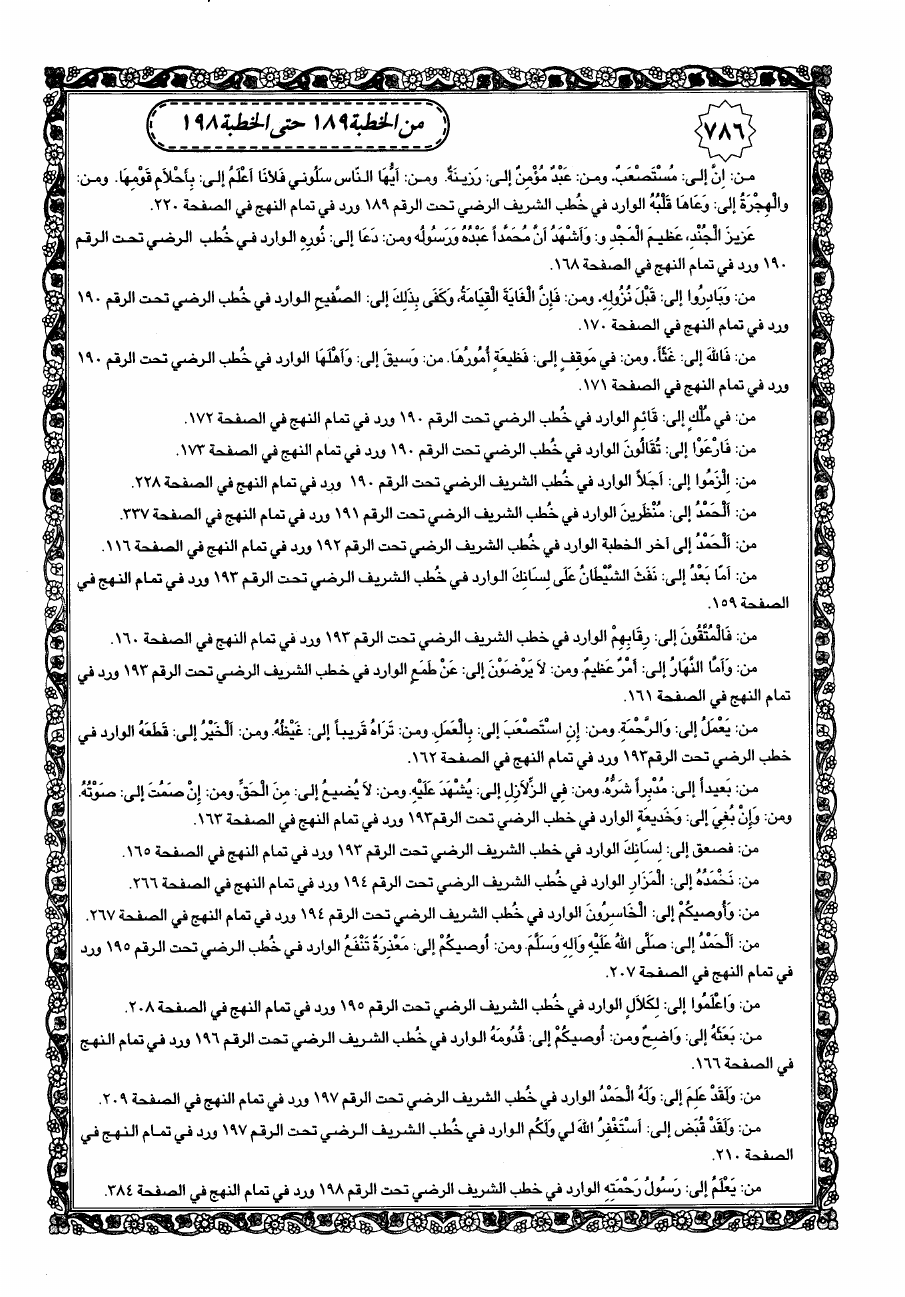 ٧٨٦
من الخطبة ١٨٩ حتى الخطبة ١٩٨
من: إِنَّ إلى: مُسْتَصْعَبٌ. ومن: عَبْدٌ مُؤْمِنٌ إلى: رَزِينَةٌ. ومن: أَيُّهَا النَّاس سَلُوني فَلأَنَا أَعْلَمُ إلى: بِأَحْلاَمِ قَوْمِهَا. ومن:
وَالْهِجْرَةُ إلى: وَعَاهَا قَلْبُهُ الوارد في خُطب الشريف الرضي تحت الرقم ١٨٩ ورد في تمام النهج في الصفحة ٢٢٠.
عَزِيزَ الْجُنْدِ، عَظِيمَ الْمَجْدِ و: وَأَشْهَدُ أَنَّ مُحَمَّداً عَبْدُهُ وَرَسُولُه ومن: دَعَا إلى: نُورِهِ الوارد في خُطب الرضي تحت الرقم
١٩٠ ورد في تمام النهج في الصفحة ١٦٨.
من: وَبَادِرُوا إلى: قَبْلَ نُزُولِهِ. ومن: فَإِنَّ الْغَايَةَ الْقِيَامَةُ، وَكَفَى بِذَلِكَ إلى: الصَّفيحِ الوارد في خُطب الرضي تحت الرقم ١٩٠
ورد في تمام النهج في الصفحة ١٧٠.
من: فَاللهَ إلى: غَثّاً. ومن: في مَوقِفٍ إلى: فَظيعَةٍ أُمُورُهَا. من: وَسيقَ إلى: وَأَهْلَهَا الوارد في خُطب الرضي تحت الرقم ١٩٠
ورد في تمام النهج في الصفحة ١٧١.
من: في مُلْكٍ إلى: قَائِمٍ الوارد في خُطب الرضي تحت الرقم ١٩٠ ورد في تمام النهج في الصفحة ١٧٢.
من: فَارْعَوْا إلى: تُقَالُونَ الوارد في خُطب الرضي تحت الرقم ١٩٠ ورد في تمام النهج في الصفحة ١٧٣.
من: اِلْزَمُوا إلى: أَجَلاً الوارد في خُطب الشريف الرضي تحت الرقم ١٩٠ ورد في تمام النهج في الصفحة ٢٢٨.
من: اَلْحَمْدُ إلى: مُنْظَرينَ الوارد في خُطب الشريف الرضي تحت الرقم ١٩١ ورد في تمام النهج في الصفحة ٣٣٧.
من: اَلْحَمْدُ إلى آخر الخطبة الوارد في خُطب الشريف الرضي تحت الرقم ١٩٢ ورد في تمام النهج في الصفحة ١١٦.
من: أَمَّا بَعْدُ إلى: نَفَثَ الشَّيْطَانُ عَلَى لِسَانِكَ الوارد في خُطب الشريف الرضي تحت الرقم ١٩٣ ورد في تمام النهج في
الصفحة ١٥٩.
من: فَالْمُتَّقُونَ إلى: رِقَابِهِمْ الوارد في خطب الشريف الرضي تحت الرقم ١٩٣ ورد في تمام النهج في الصفحة ١٦٠.
من: وَأَمَّا النَّهَارُ إلى: أَمْرٌ عَظيمٌ. ومن: لاَ يَرْضَوْنَ إلى: عَنْ طَمَعٍ الوارد في خطب الشريف الرضي تحت الرقم ١٩٣ ورد في
تمام النهج في الصفحة ١٦١.
من: يَعْمَلُ إلى: وَالرَّحْمَةِ. ومن: إِنِ اسْتَصْعَبَ إلى: بِالْعَمَلِ. ومن: تَرَاهُ قَريباً إلى: غَيْظُهُ. ومن: اَلْخَيْرُ إلى: قَطَعَهُ الوارد في
خطب الرضي تحت الرقم١٩٣ ورد في تمام النهج في الصفحة ١٦٢.
من: بَعيداً إلى: مُدْبِراً شَرُّهُ. ومن: فِي الزَّلاَزِلِ إلى: يُشْهَدَ عَلَيْهِ. ومن: لاَ يُضيعُ إلى: مِنَ الْحَقِّ. ومن: إِنْ صَمَتَ إلى: صَوْتُهُ.
ومن: وَإِنْ بُغِيَ إلى: وَخَديعَةٍ الوارد في خطب الرضي تحت الرقم١٩٣ ورد في تمام النهج في الصفحة ١٦٣.
من: فصعق إلى: لِسَانِكَ الوارد في خطب الشريف الرضي تحت الرقم ١٩٣ ورد في تمام النهج في الصفحة ١٦٥.
من: نَحْمَدُهُ إلى: الْمَزَارِ الوارد في خُطب الشريف الرضي تحت الرقم ١٩٤ ورد في تمام النهج في الصفحة ٢٦٦.
من: وَأُوصيكُمْ إلى: الْخَاسِرُونَ الوارد في خُطب الشريف الرضي تحت الرقم ١٩٤ ورد في تمام النهج في الصفحة ٢٦٧.
من: اَلْحَمْدُ إلى: صَلَّى اللهُ عَلَيْهِ وَآلِهِ وَسَلَّمَ. ومن: أُوصيكُمْ إلى: مَعْذِرَةٌ تَنْفَعُ الوارد في خُطب الرضي تحت الرقم ١٩٥ ورد
في تمام النهج في الصفحة ٢٠٧.
من: وَاعْلَمُوا إلى: لِكَلاَلٍ الوارد في خُطب الشريف الرضي تحت الرقم ١٩٥ ورد في تمام النهج في الصفحة ٢٠٨.
من: بَعَثَهُ إلى: وَاضِحٌ ومن: أُوصيكُمْ إلى: قُدُومَهُ الوارد في خُطب الشريف الرضي تحت الرقم ١٩٦ ورد في تمام النهج
في الصفحة ١٦٦.
من: وَلَقَدْ عَلِمَ إلى: وَلَهُ الْحَمْدُ الوارد في خُطب الشريف الرضي تحت الرقم ١٩٧ ورد في تمام النهج في الصفحة ٢٠٩.
من: وَلَقَدْ قُبِضَ إلى: أَسْتَغْفِرُ اللهَ لي وَلَكُم الوارد في خُطب الشريف الرضي تحت الرقم ١٩٧ ورد في تمام النهج في
الصفحة ٢١٠.
من: يَعْلَمُ إلى: رَسُولُ رَحْمَتِهِ الوارد في خطب الشريف الرضي تحت الرقم ١٩٨ ورد في تمام النهج في الصفحة ٣٨٤.